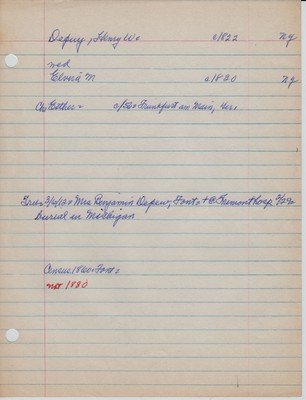 Depuy, Henry W. c1822 NY
med
Elvera M c1830 NY
Ch: Esther = c/50 Frankfurt am Main, Ger.
3/10/10 = Mrs. Benjamin Depew, Font. + @ Fremont Hosp 3/29
burial in Michigan
Census 1860 Font =
not 1880